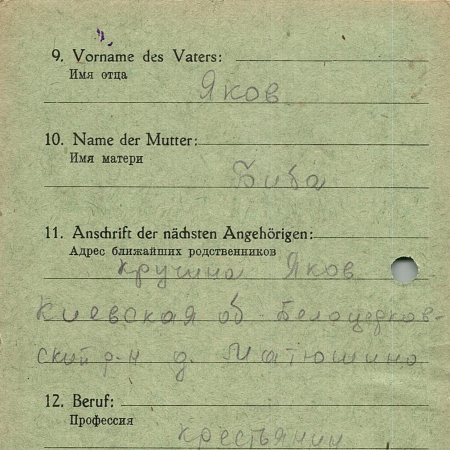 9. Vorname des Vaters:
Имя отца
Яков
10. Name der Mutter:
Имя матери
Биба
11. Anschrift der nächsten Angehörigen:
Адрес ближайших родственников
Кручина Яков
Киевская об. Белоцерков-
ский р-н д. Матюшино
12. Beruf:
Профессия
Крестьянин